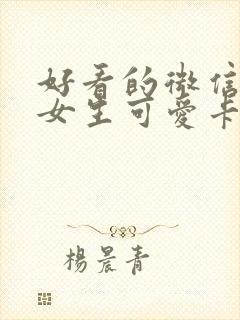 好看的微信
女生可爱卡
楊晨青